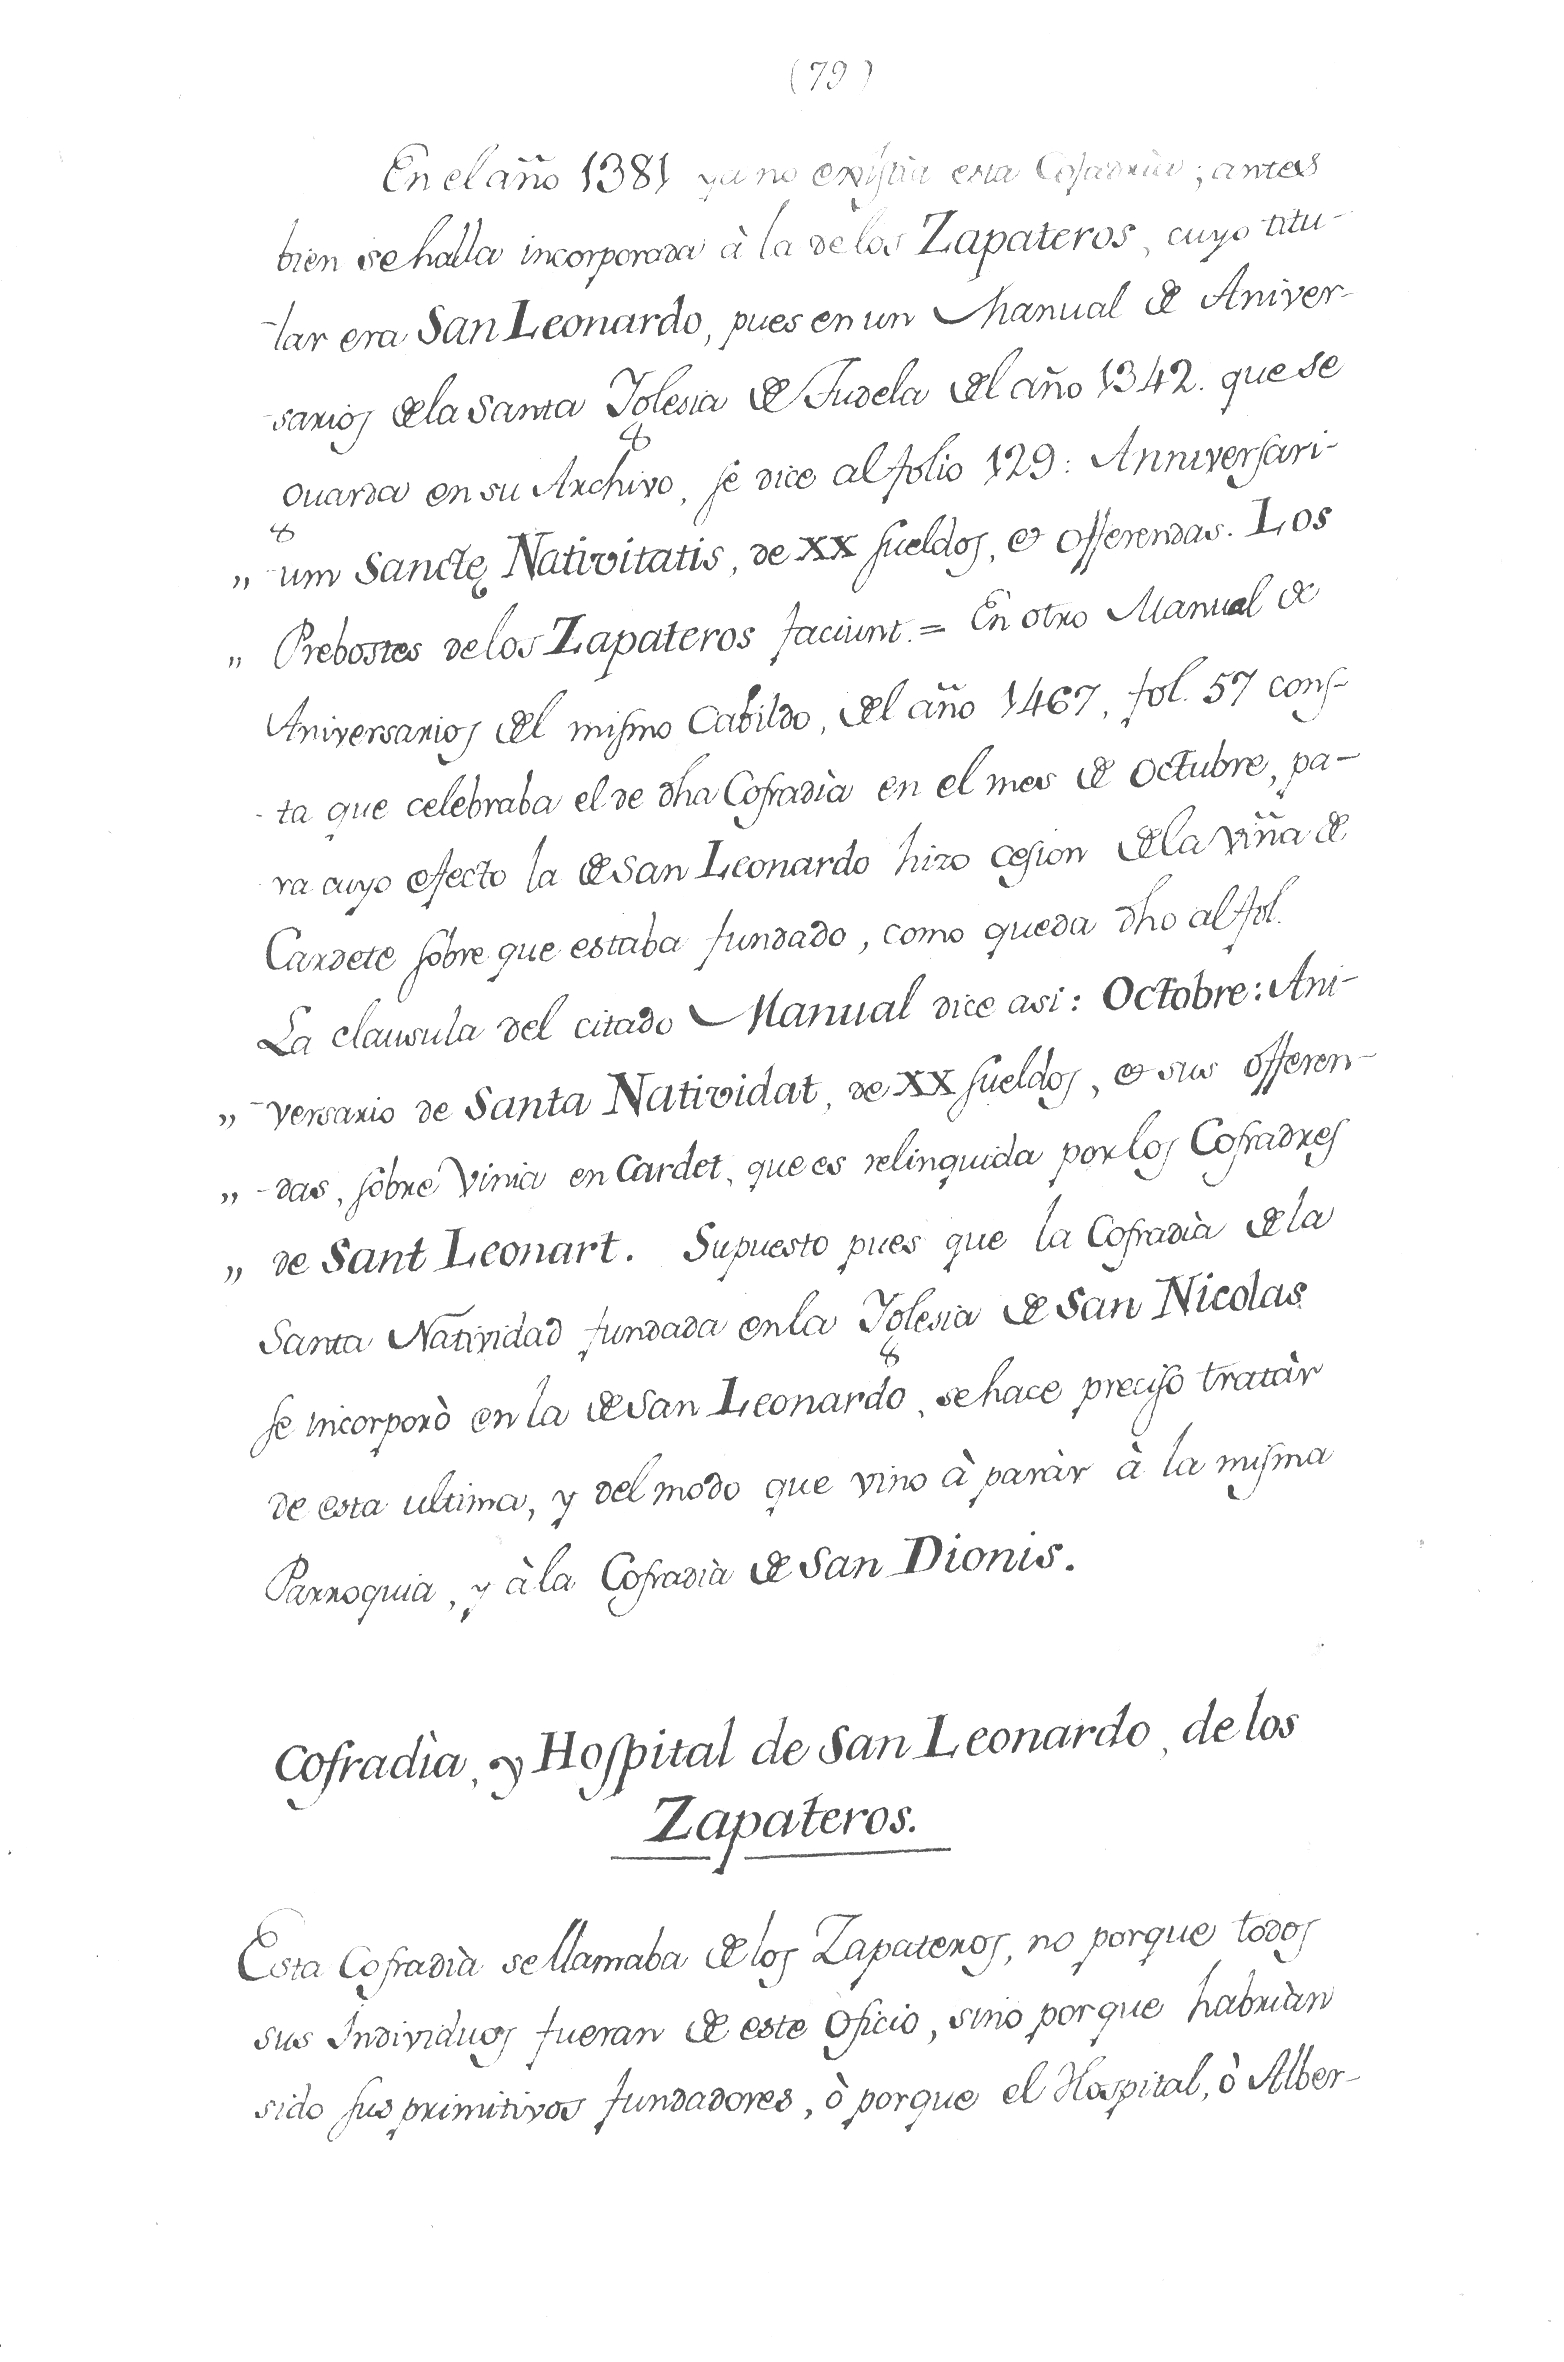 (79)
En el año 1381 ya no existia esta Cofadria; antes
bien se halla incorporada à la de los Zapateros, cuyo titu-
-lar era San Leonardo, pues en un Manual de Aniver-
-sarios de la Santa Iglesia de Tudela del año 1342. que se
guarda en su Archivo, se dice al folio 129: Anniversari-
„ -um Sanctę Nativitatis, de XX sueldos, et offerendas. Los
„ Prebostes de los Zapateros faciunt. = En otro Manual de
Aniversarios del mismo Cabildo, del año 1467, fol. 57 cons-
-ta que celebraba el de dha Cofradìa en el mes de Octubre, pa-
ra cuyo efecto la de San Leonardo hizo cesion de la viña de
Cardete sobre que estaba fundado, como queda dho al fol.
La clausula del citado Manual dice asi: Octobre: Ani-
„ -versario de Santa Natividat, de XX sueldos, et sus offeren-
„ -das, sobre Vinia en Cardet, que es relinquida por los Cofradres
„ de Sant Leonart. Supuesto pues que la Cofradìa de la
Santa Natividad fundada en la Iglesia de San Nicolas
se incorporò en la de San Leonardo, se hace preciso tratàr
de esta ultima, y del modo que vino à paràr à la misma
Parroquia, y à la Cofradìa de San Dionis.
Cofradìa, y Hospital de San Leonardo, de los
Zapateros.
Esta Cofradìa se llamaba de los Zapateros, no porque todos
sus Individuos fueran de este Oficio, sino porque habrian
sido sus primitivos fundadores, ò porque el Hospital, ò Alber-